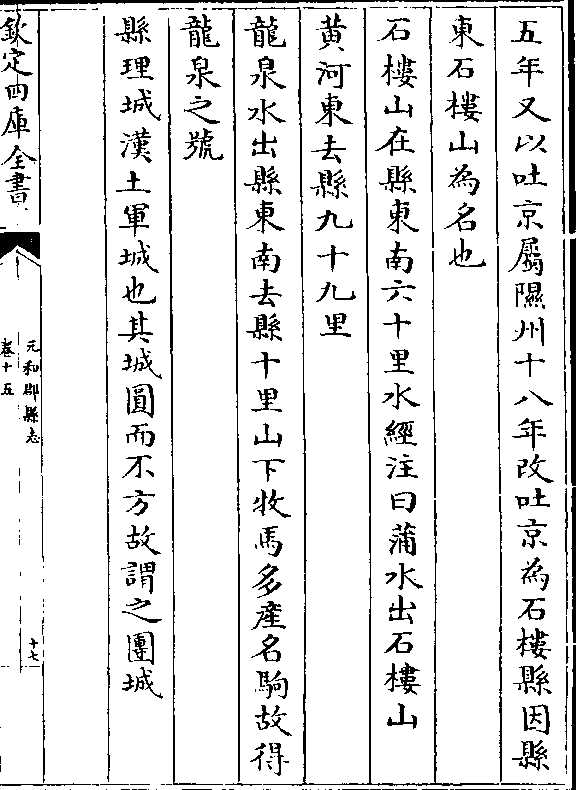 五年又以吐京屬隰州十八年改吐京為石樓縣因縣
東石樓山為名也
石樓山在縣東南六十里水經注曰蒲水出石樓山
黃河東去縣九十九里
龍泉水出縣東南去縣十里山下牧馬多產名駒故得
龍泉之號
縣理城漢土軍城也其城圓而不方故謂之團城
欽定四庫全書
元和郡縣志
卷十五
十七